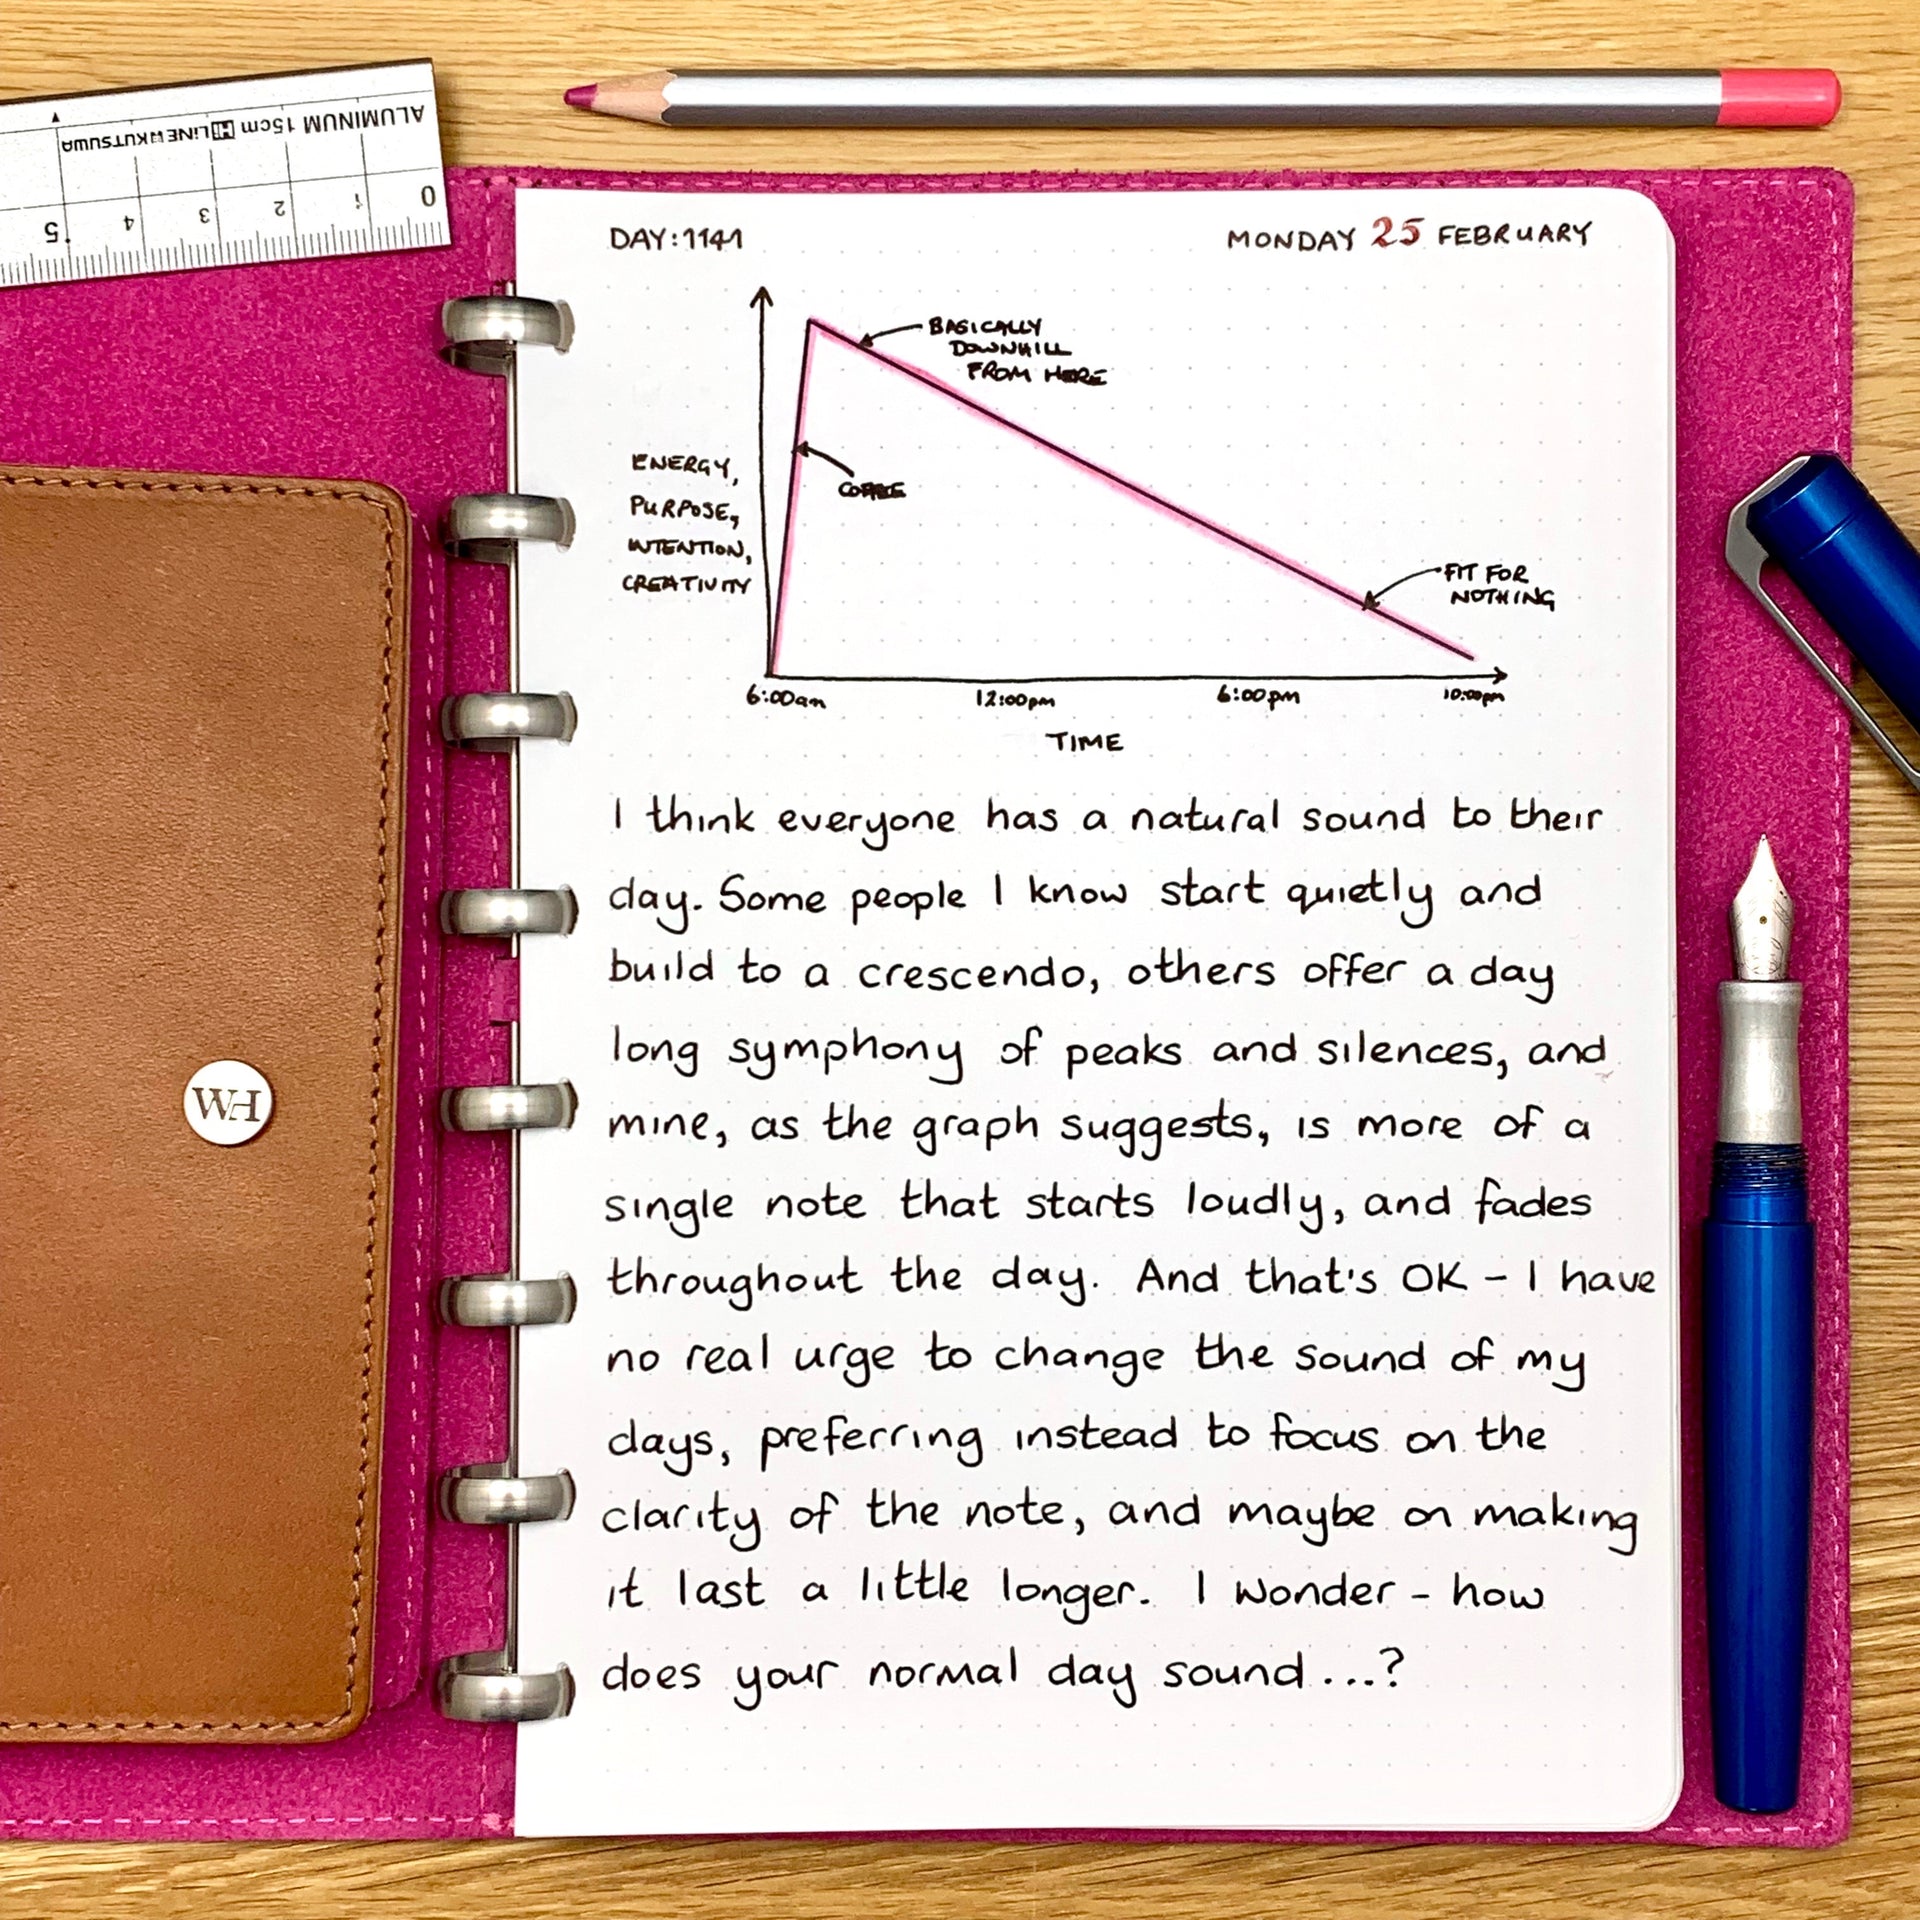 ALUMINUM 15cm HI LINE KUTSUWA
0 1 2 3 4 5
DAY: 1141
MONDAY 25 FEBRUARY
BASICALLY
DOWNHILL
FROM HERE
ENERGY,
PURPOSE,
INTENTION,
CREATIVITY
COFFEE
FIT FOR
NOTHING
6:00am 12:00pm 6:00pm 10:00pm
TIME
I think everyone has a natural sound to their
day. Some people I know start quietly and
build to a crescendo, others offer a day
long symphony of peaks and silences, and
mine, as the graph suggests, is more of a
single note that starts loudly, and fades
throughout the day. And that's OK - I have
no real urge to change the sound of my
days, preferring instead to focus on the
clarity of the note, and maybe on making
it last a little longer. I wonder - how
does your normal day sound...?
WH